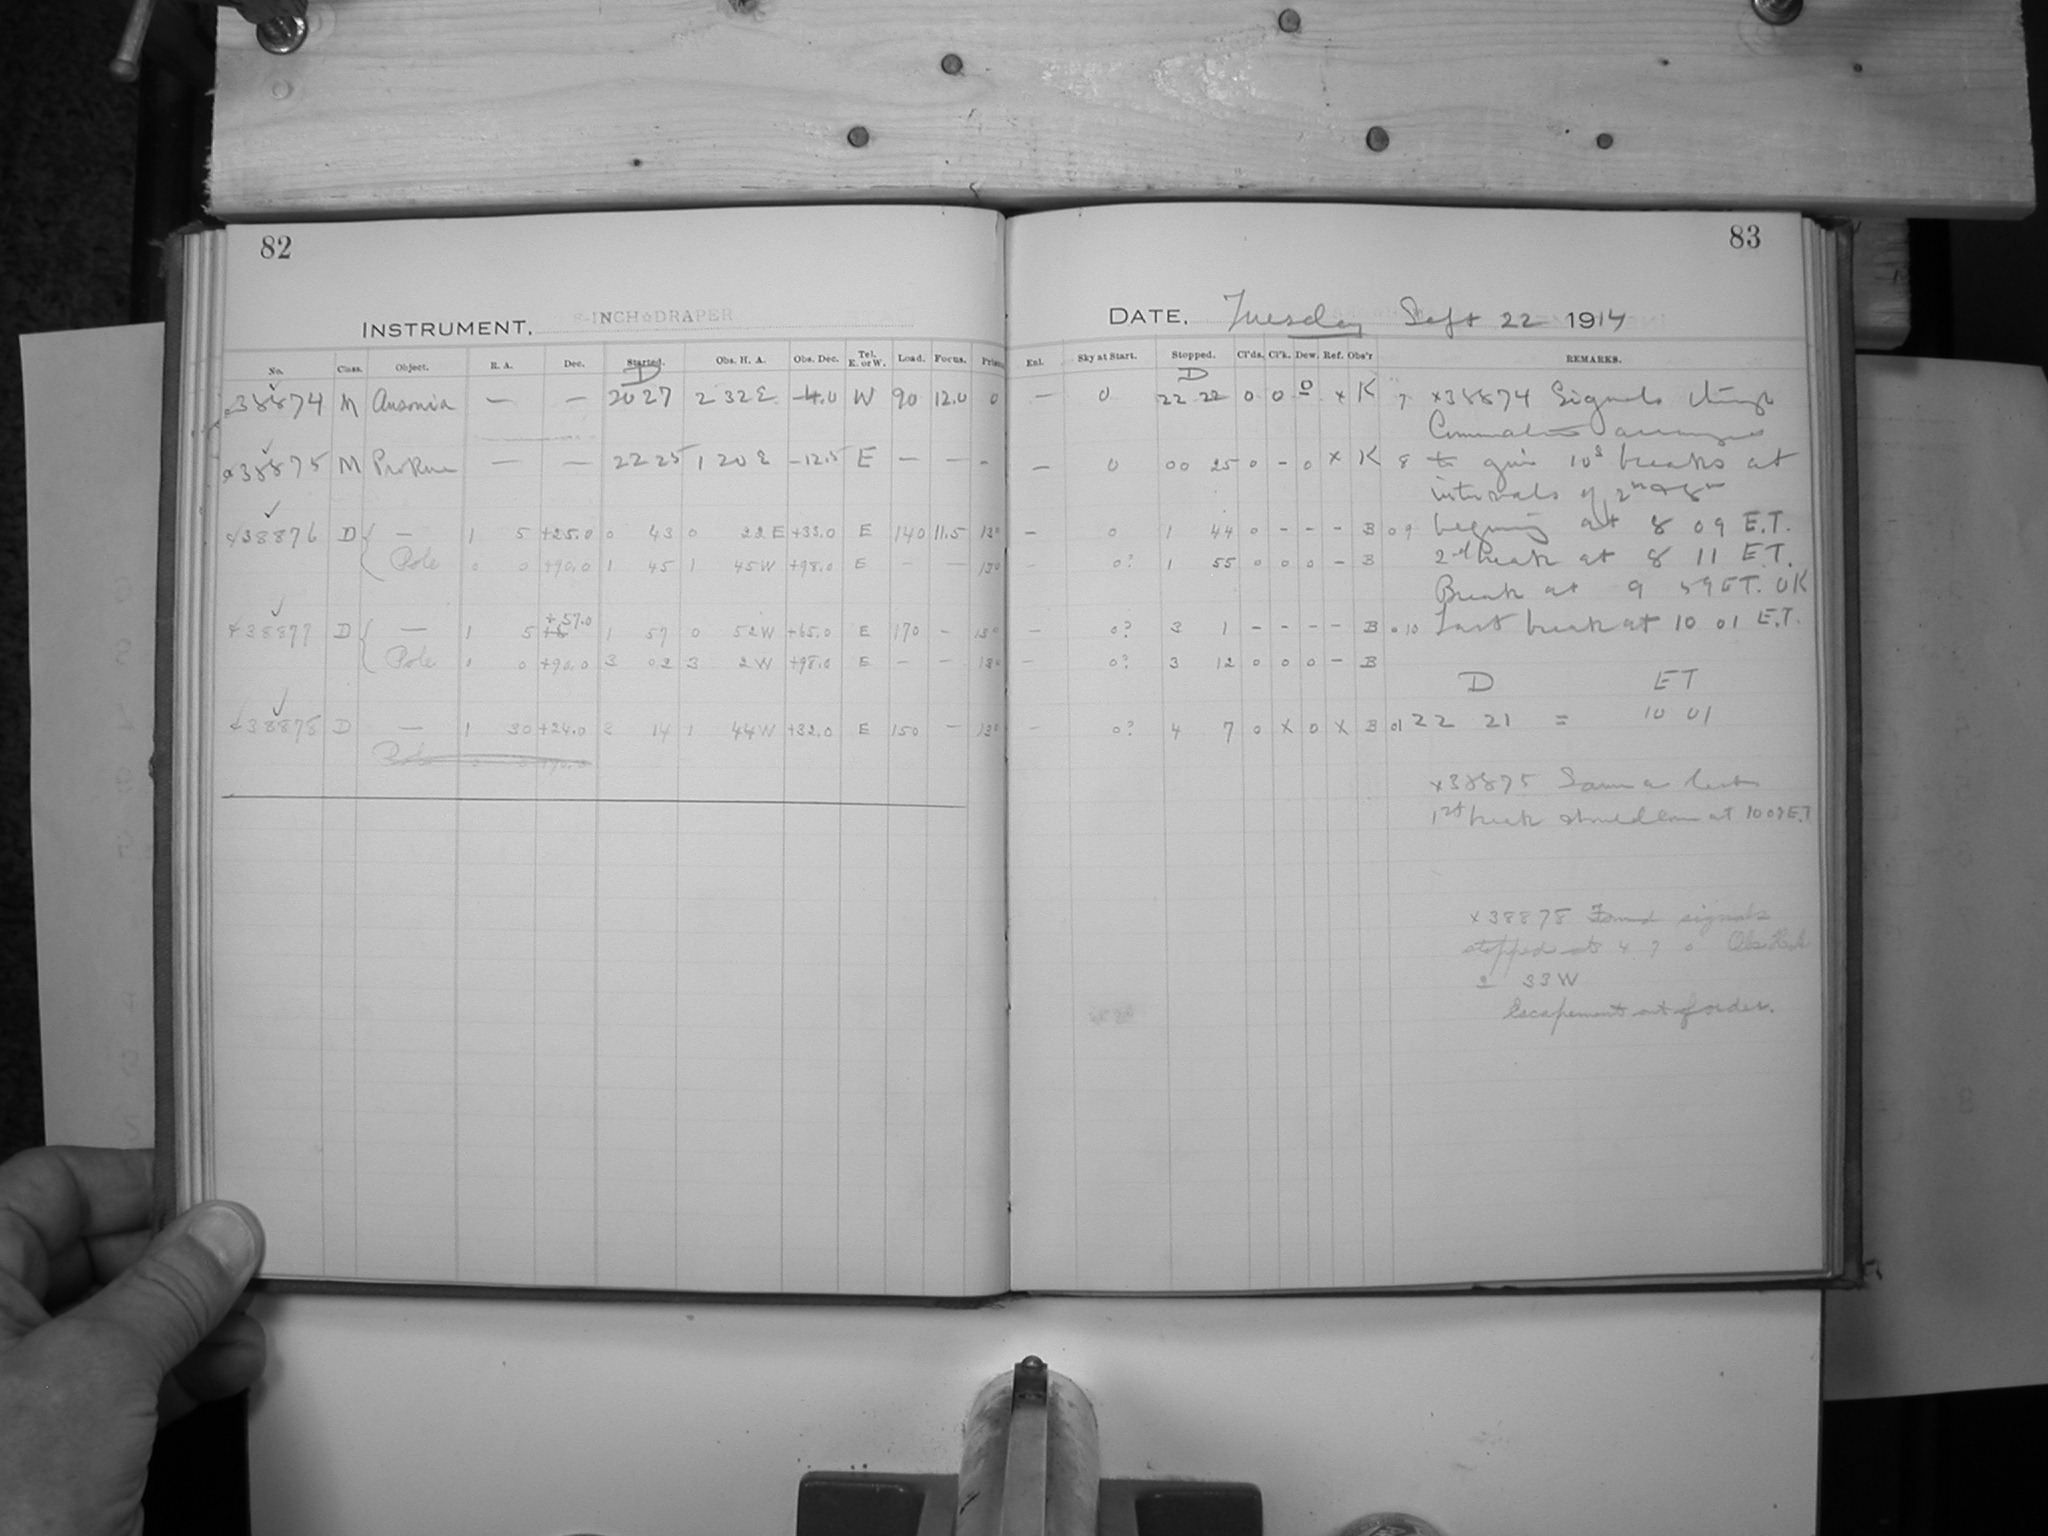 82
INSTRUMENT. 8-INCH DRAPER
No. Class. Object. R. A. Dec. Started. Obs. H. A. Obs. Dec. Tel. E. or W. Load. Focus. Prism
D
x38874 M Ausonia — — 20 27 2 32 E -4.0 W 90 12.0 0
x38875 M Prokne — — 22 25 1 20 E -12.5 E — — -
x38876 D — 1 5 +25.0 0 43 0 22 E +33.0 E 140 11.5 13°
Pole 0 0 +90.0 1 45 1 45W +98.0 E - — 13°
x38877 D — 1 5 +57.0 1 57 0 52W +65.0 E 170 - 13°
Pole 0 0 +90.0 3 02 3 2W +98.0 E — — 13°
x38878 D — 1 30 +24.0 3 14 1 44W +32.0 E 150 — 13°
Pole
83
DATE. Tuesday Sept 22 1914
Enl. Sky at Start. Stopped. Cl'ds. Cl'k. Dew. Ref. Obs'r REMARKS.
D
— 0 22 22 0 0 0 x K 7 x38874 Signals through
Commutator arranged
— 0 00 25 0 - 0 x K 8 to give 10s breaks at
intervals of 2m & 8m
— 0 1 44 0 - - - B 09 beginning at 8 09 E.T.
— 0? 1 55 0 0 0 - B 2nd break at 8 11 E.T.
Break at 9 59 ET. OK
— 0? 3 1 - - - - B 010 Last break at 10 01 E.T.
— 0? 3 12 0 0 0 - B
D ET
— 0? 4 7 0 x 0 x B 01 22 21 = 10 01
x38875 Same as last
1st break should come at 10 09 E.T.
x38878 Found signals
stopped at 4 7 0 Obs
2 33W
Escapement out of order.